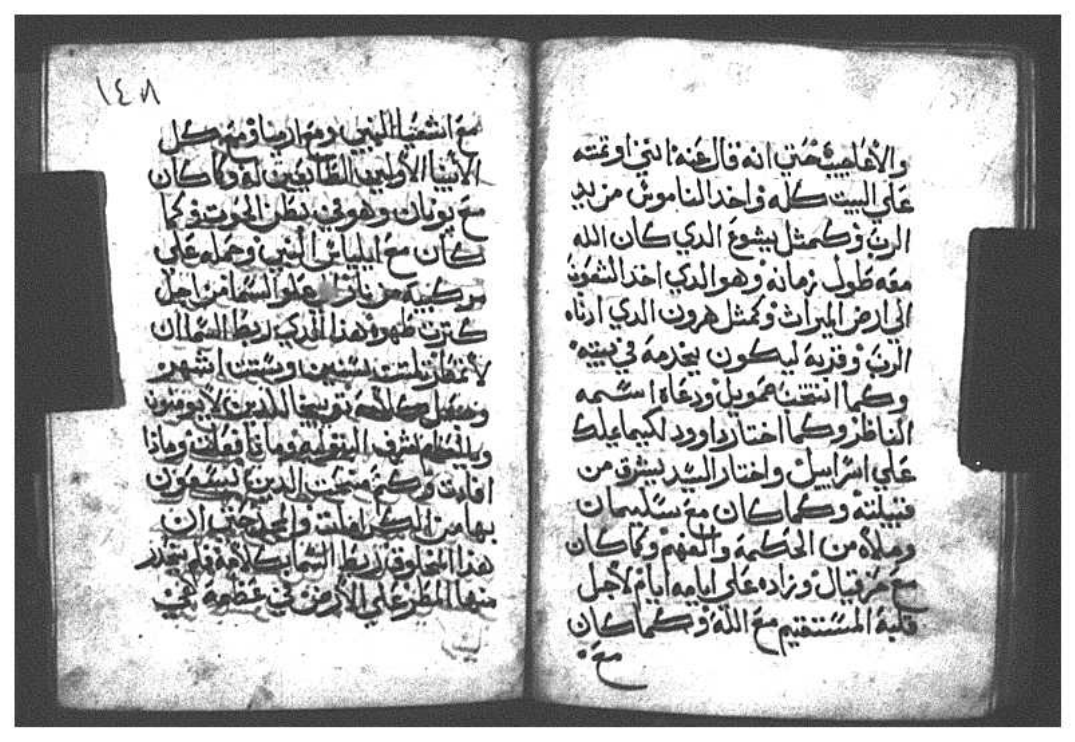 والاعاجيب حتي انه قال عنه انني اوتمنته
علي البيت كله واخد الناموس من يد
الرب وكمثل يشوع الدي كان الله
معه طول زمانه وهو الدي اخد الشعوب
الي ارض الميراث وكمثل هرون الدي ارتاه
الرب وقربه ليكون يخدمه في بيته
وكما انتخب صمويل ودعاه اسمه
الناظر وكما اختار داوود لكيما يملك
علي اسراييل واختار السيد يشرق من
قبيلته وكما كان مع سليمان
وملاه من الحكمه والفهم وكما كان
مع حزقيال وزاده علي ايامه ايام لاجل
قلبه المستقيم مع الله وكما كان
مع
١٤٨
مع اشعيا النبي ومع ارميا ومع كل
الانبيا الاولين الطايعين له وكما كان
مع يونان وهو في بطن الحوت وكما
كان مع ايلياس النبي وحمله علي
مركبة من نار الي علو السما من اجل
كترت طهره هدا الدي ربط السما ان
لا تمطر تلت سنين وستت اشهر
كلامه توبيخا للدين لا يومنون
شرف البتوليه وما دا فعلت وماذا
افادت وكم منحت الدين يسعون
بها من الكرامات والمجد حتي ان
هدا المخلوق ربط السما بكلامه فلم ينحدر
منها المطر علي الارض في عظمه هي